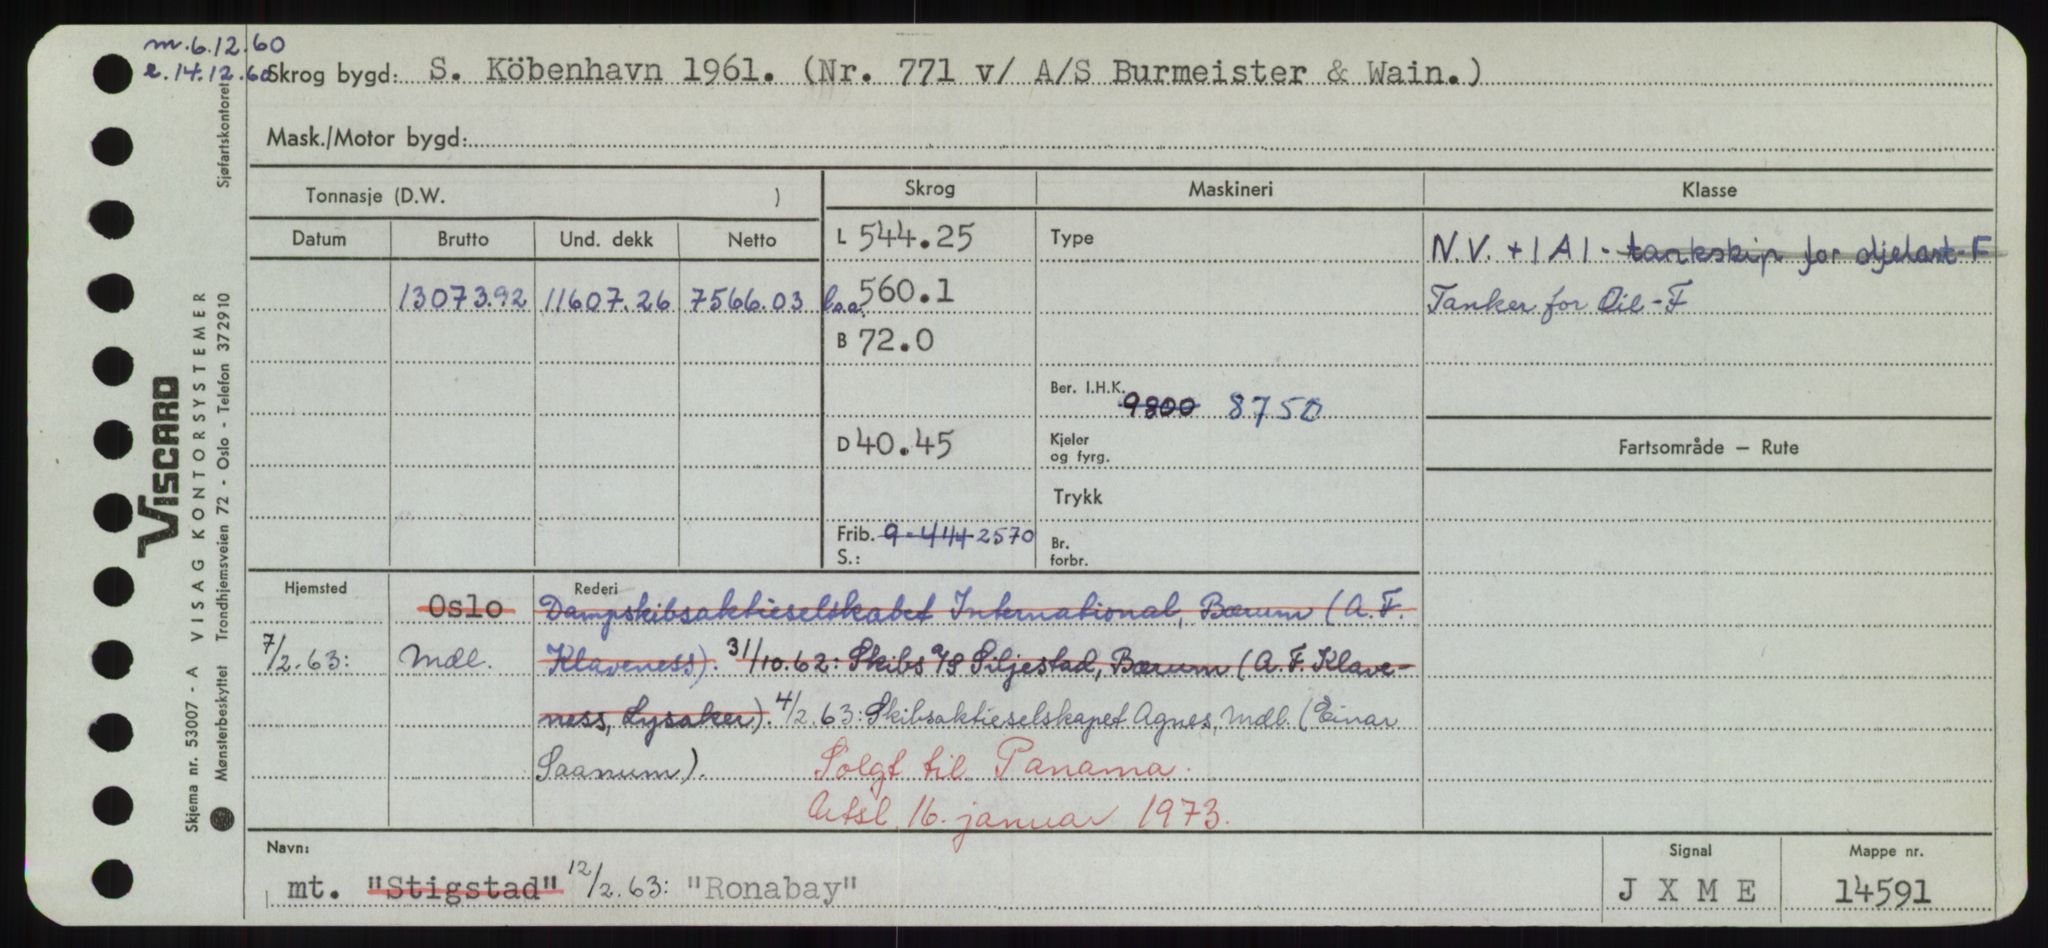 m.6.12.60
r.14.12.60
Skrog bygd: S. Köbenhavn 1961. (Nr. 771 v/ A/S Burmeister & Wain.)
Mask./Motor bygd:
Tonnasje (D.W. )
Skrog
Maskineri
Klasse
Datum Brutto Und. dekk Netto
L 544.25
Type
N.V. + 1 A 1 - tankskip for oljelast-F
13073.92 11607.26 7566.03
l.o.a. 560.1
Tanker for Oil-F
B 72.0
Ber. I.H.K. 9800 8750
D 40.45
Kjeler
og fyrg.
Fartsområde — Rute
Trykk
Frib. 9-444 2570
S.:
Br.
forbr.
Hjemsted Oslo
Rederi
Dampskibsaktieselskabet International, Bærum (A.F.
7/2.63: Mdl. Klaveness). 31/10.62: Skibs A/S Siljestad, Bærum (A.F. Klave-
ness, Lysaker). 4/2.63: Skibsaktieselskapet Agnes, Mdl. (Einar
Saanum). Solgt til Panama.
Utsl. 16. januar 1973.
Navn:
mt. "Stigstad" 12/2.63: "Ronabay"
Signal
J X M E
Mappe nr.
14591
VISCARD
Skjema nr. 53007 - A VISAG KONTORSYSTEMER
Mønsterbeskyttet Trondhjemsveien 72 - Oslo - Telefon 372910 Sjøfartskontoret